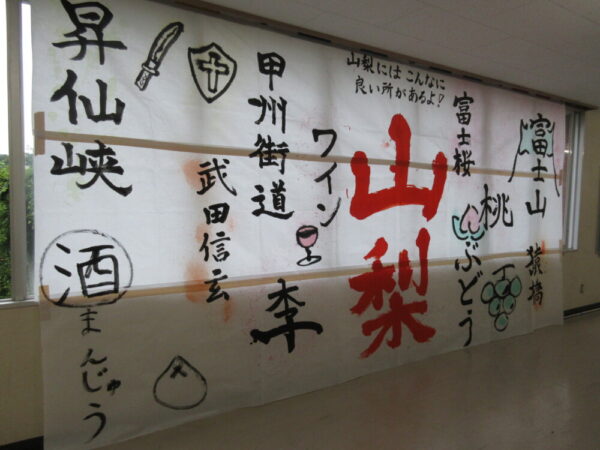 山梨にはこんなに
良い所があるよ!
山梨
富士山
猿橋
桃
富士桜
ぶどう
ワイン
李
甲州街道
武田信玄
昇仙峡
酒まんじゅう